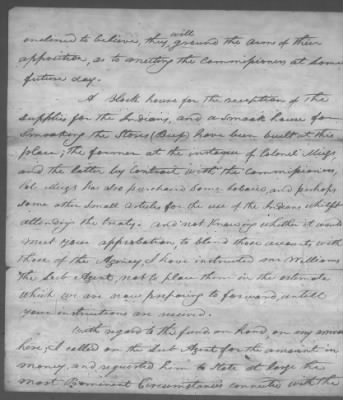 enclined to believe, they will ground the arms of their
opposition, as to meeting the Commissioners at some
future day.
A Block house for the reception of the
supplies for the Indians, and a smoak house for
smoaking the Stores (Beef) have been built at this
place; the former at the instance of Colonel Meigs,
and the latter by Contract with the Commissioners,
Col. Meigs has also purchased some tobacco, and perhaps
some other small articles for the use of the Indians whilst
attending the treaty. and not knowing whether it would
meet your approbation, to blend those accounts with
those of the Agency, I have instructed Mr Williams
the Sub Agent, not to place them in the estimate
which we are now preparing to forward, untill
your instructions are received.
With regard to the fund on hand, on my arrival
here, I called on the Sub Agent for the amount in
money, and requested him to state at large the
most Prominent Circumstances connected with the